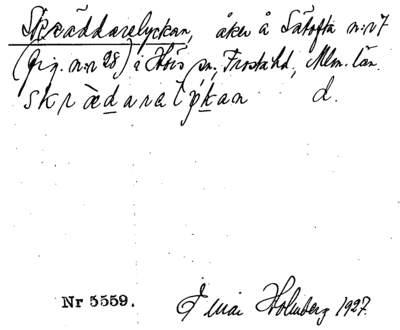 Skräddarelyckan, åker å Sätofta n:r 7
(fig. n:r 28) i Hörs sn, Frosta hd, Mlm. län
skrädaralykan d.
Nr 5559. Holmberg 1927.